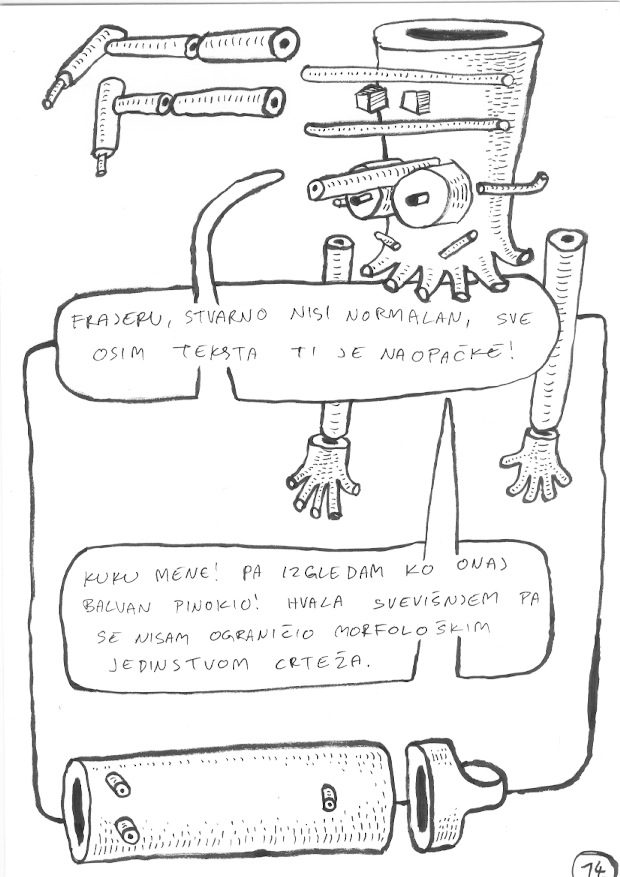 FRAJERU, STVARNO NISI NORMALAN, SVE
OSIM TEKSTA TI JE NAOPAČKE!
KUKU MENE! PA IZGLEDAM KO ONAJ
BALVAN PINOKIO! HVALA SVEVIŠNJEM PA
SE NISAM OGRANIČIO MORFOLOŠKIM
JEDINSTVOM CRTEŽA.
14